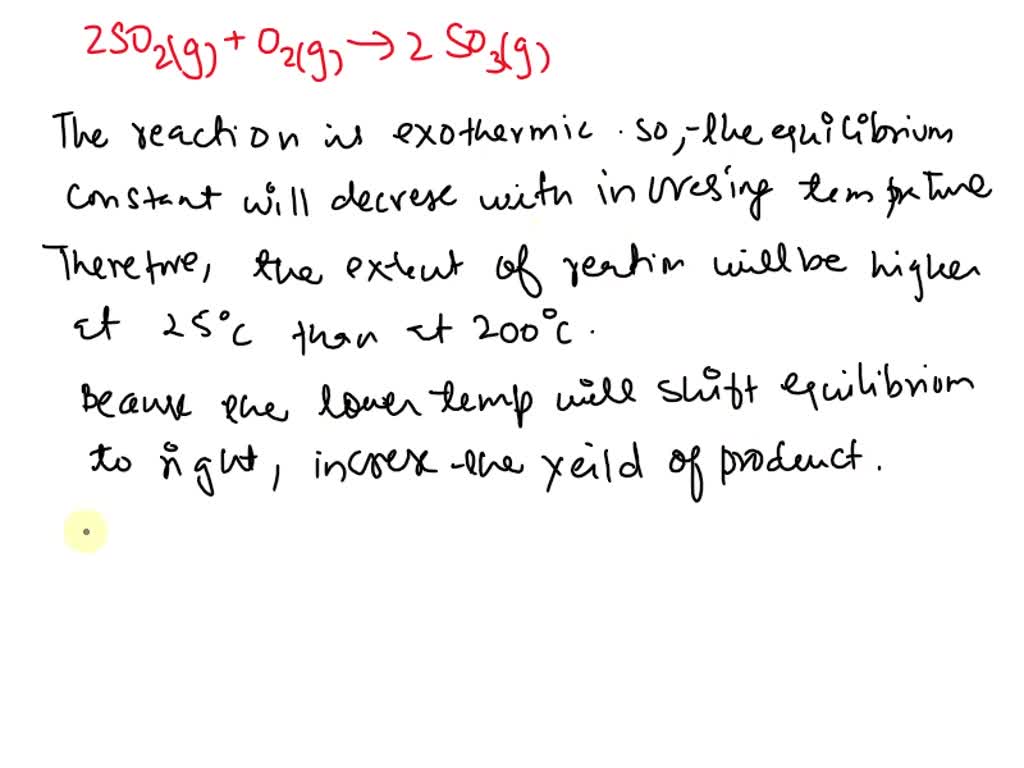 2SO2(g) + O2(g) → 2 SO3(g)
The reaction is exothermic. so, the equilibrium
constant will decrese with incresing temprture
Therefore, the extent of reaction will be higher
at 25°C than at 200°C.
Because the lower temp will shift equilibriom
to right, increse the yeild of product.